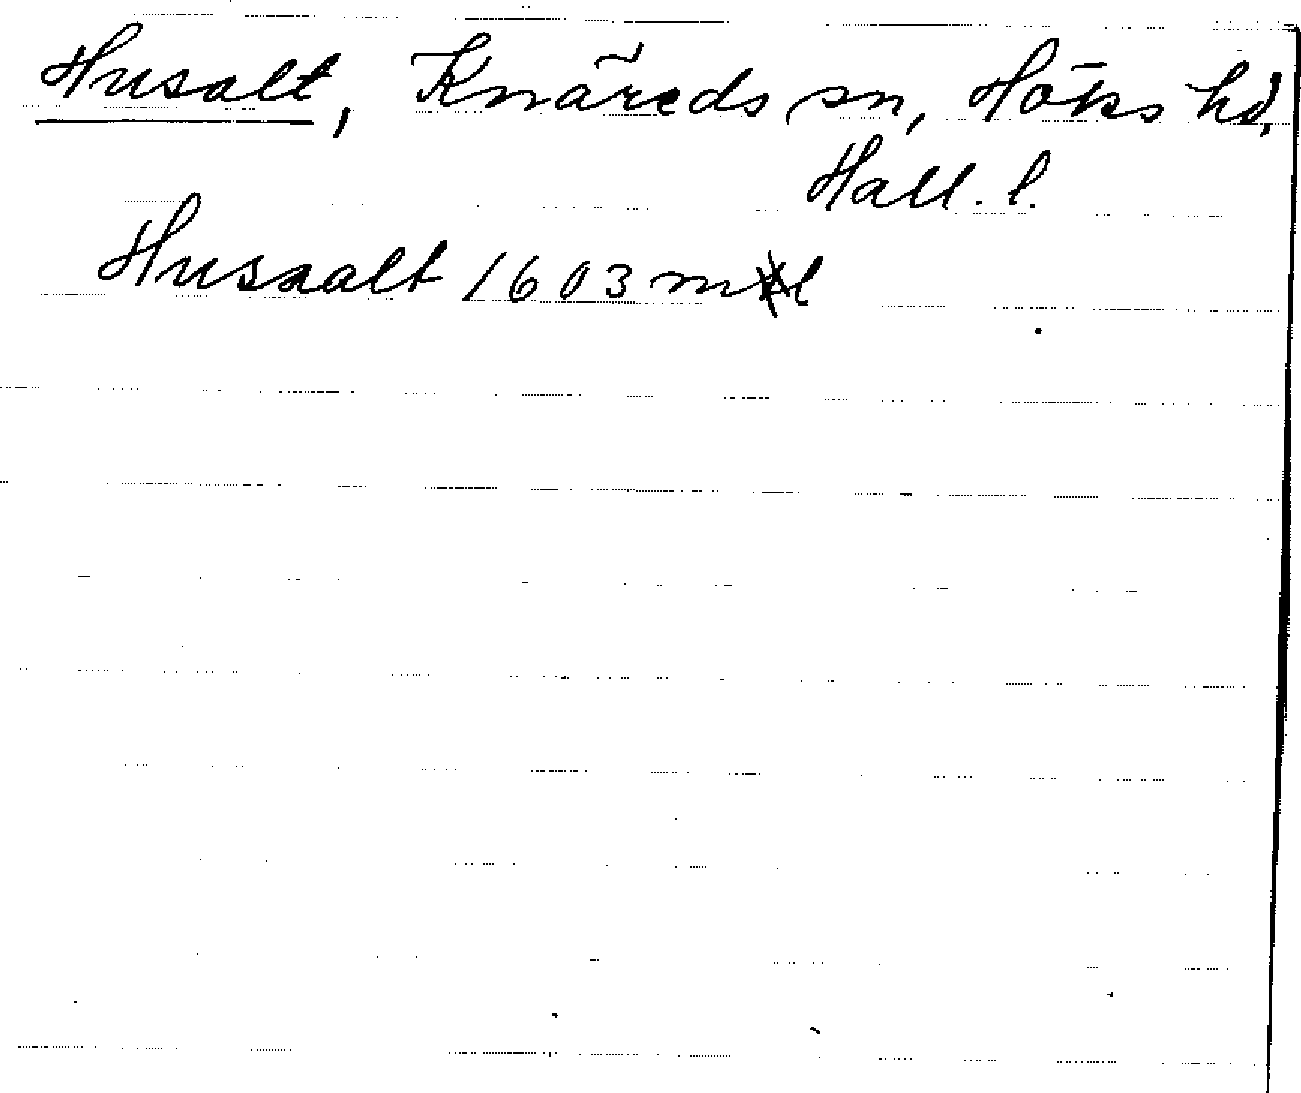 Husalt, Knäreds sn, Höks hd,
Hall. l.
Husaalt 1603 mtl